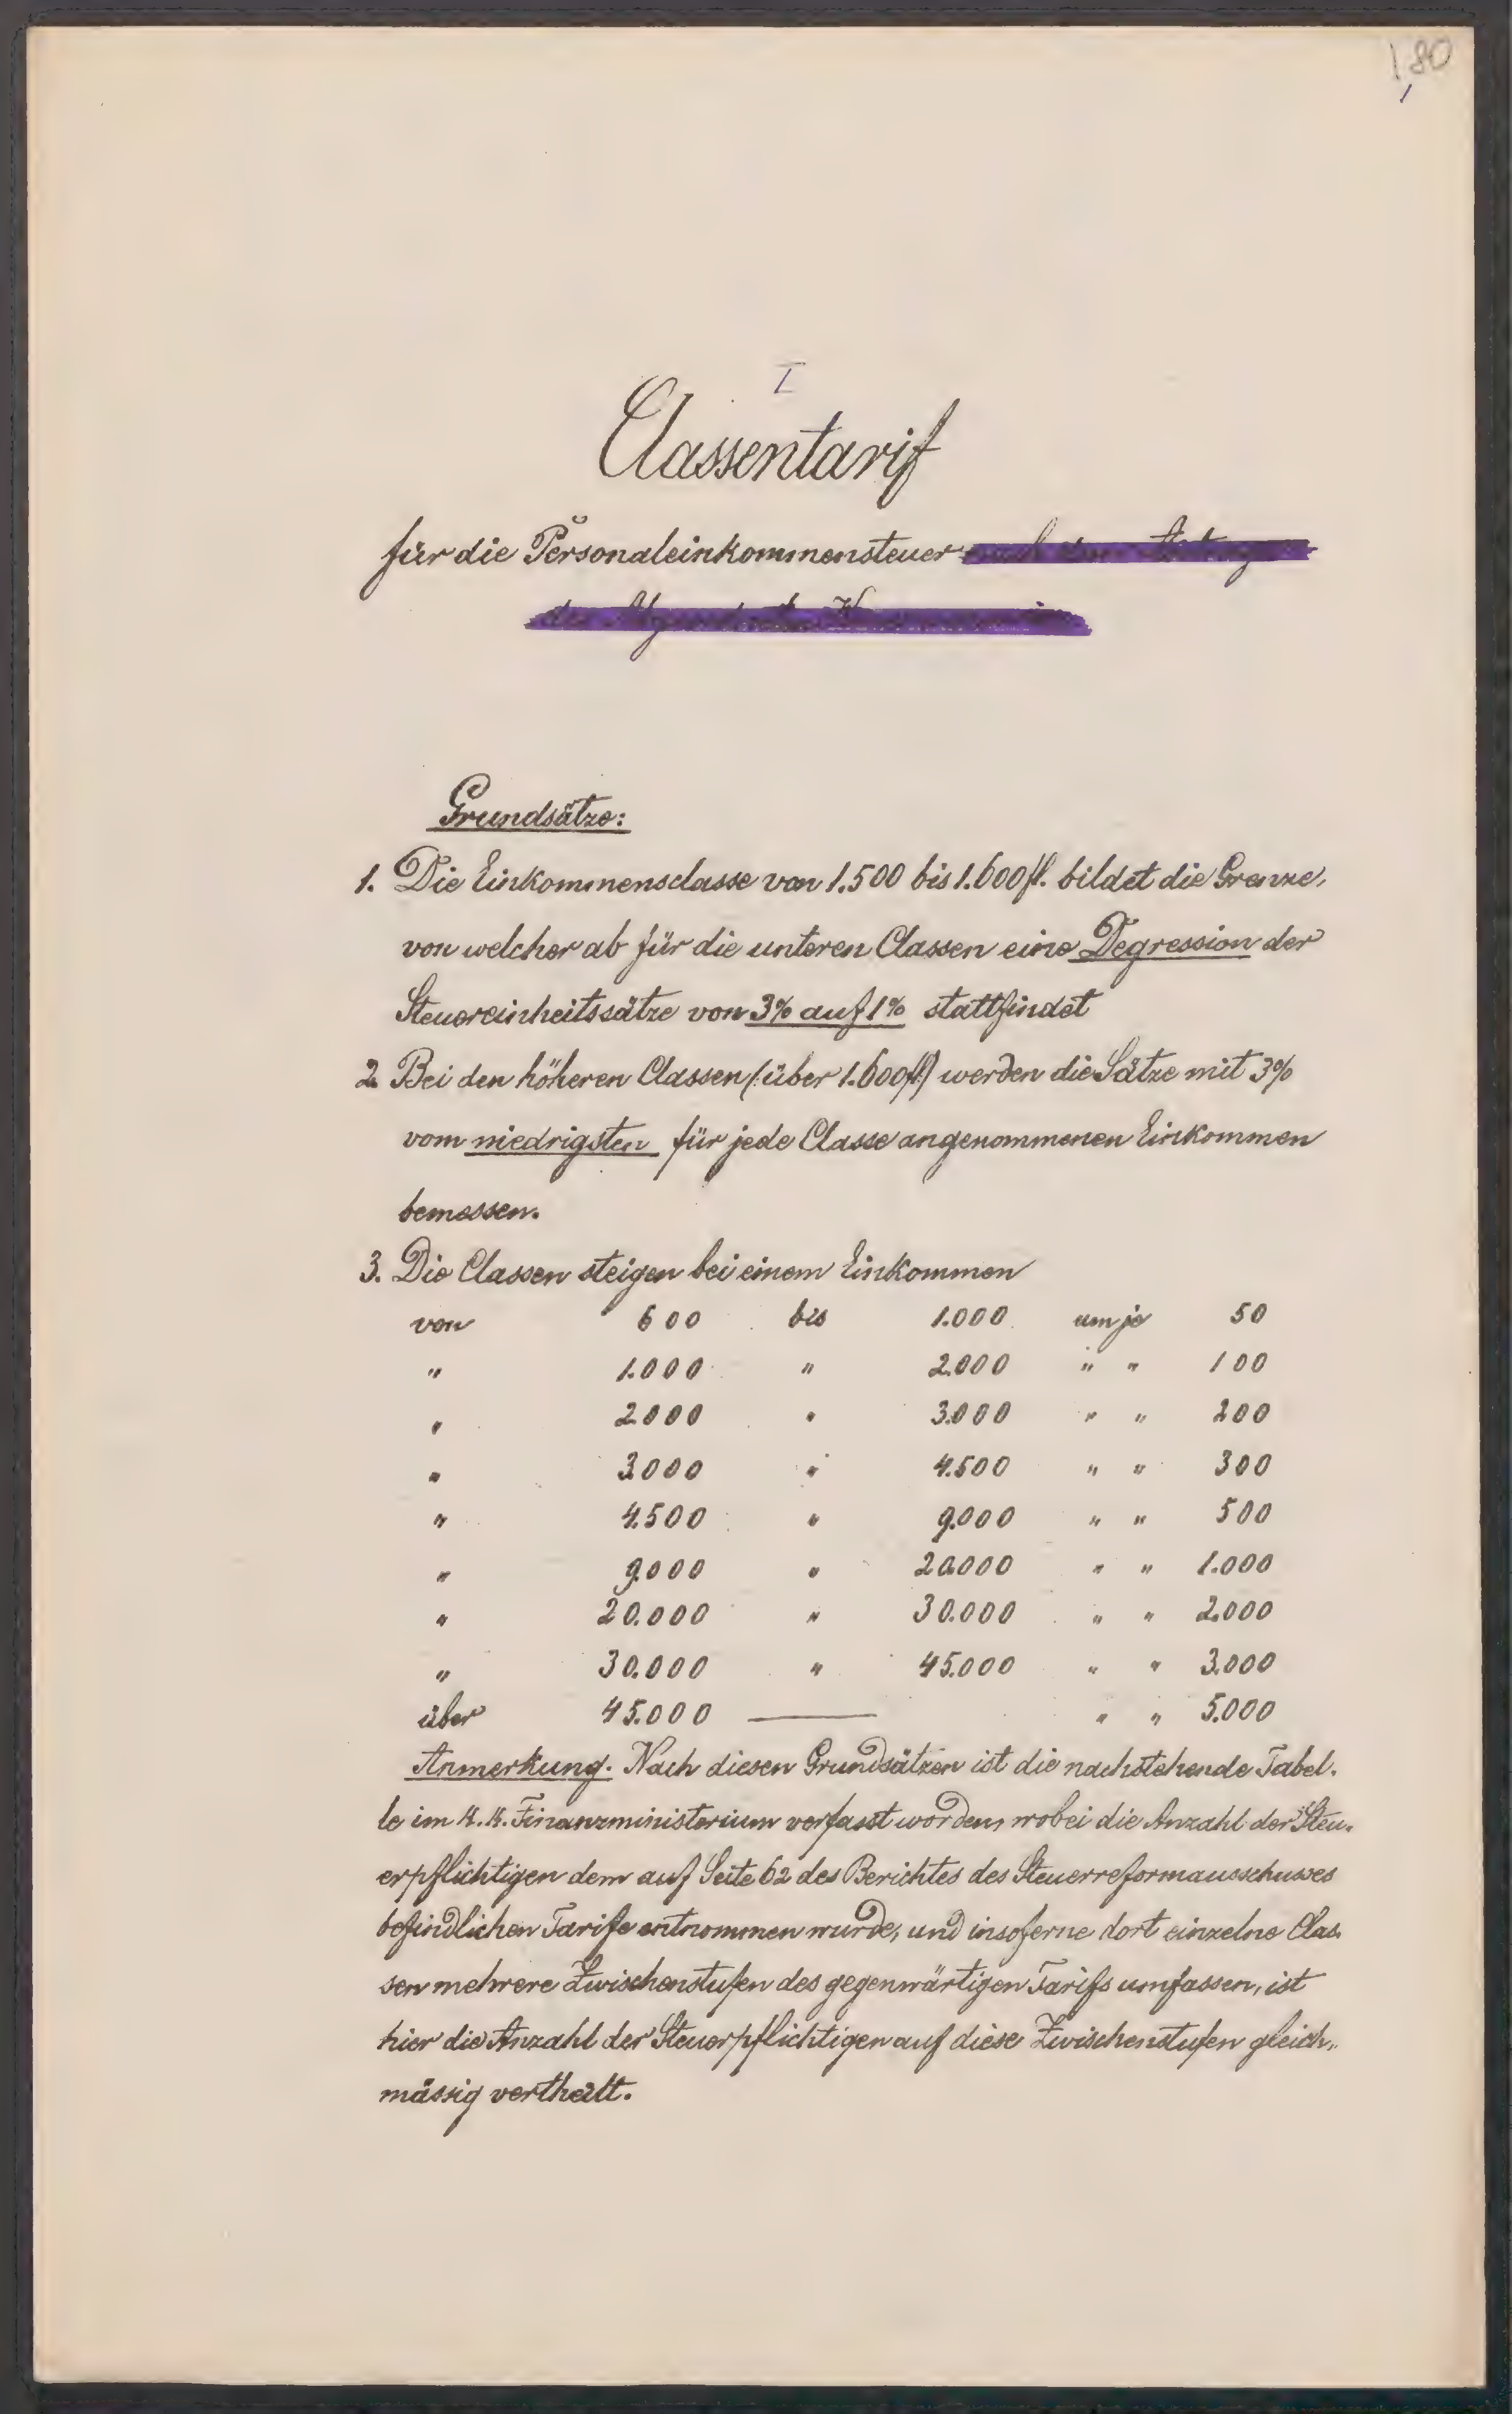 180
I
Classentarif
für die Personaleinkommensteuer nach dem Antrage
des Abgeordneten
Grundsätze:
1. Die Einkommensclasse von 1.500 bis 1.600 fl. bildet die Grenze,
von welcher ab für die unteren Classen eine Degression der
Steuereinheitssätze von 3% auf 1% stattfindet
2. Bei den höheren Classen (: über 1.600 fl) werden die Sätze mit 3%
vom niedrigsten für jede Classe angenommenen Einkommen
bemessen.
3. Die Classen steigen bei einem Einkommen
von 600 bis 1.000 um je 50
" 1.000 " 2.000 " " 100
" 2000 " 3.000 " " 200
" 3000 " 4.500 " " 300
" 4.500 " 9.000 " " 500
" 9.000 " 20.000 " " 1.000
" 20.000 " 30.000 " " 2.000
" 30.000 " 45.000 " " 3.000
über 45.000 — " " 5.000
Anmerkung. Nach diesen Grundsätzen ist die nachstehende Tabel-
le im k. k. Finanzministerium verfasst worden, wobei die Anzahl der Steu-
erpflichtigen dem auf Seite 62 des Berichtes des Steuerreformausschusses
befindlichen Tarife entnommen wurde, und insoferne dort einzelne Clas-
sen mehrere Zwischenstufen des gegenwärtigen Tarifs umfassen, ist
hier die Anzahl der Steuerpflichtigen auf diese Zwischenstufen gleich-
mässig vertheilt.